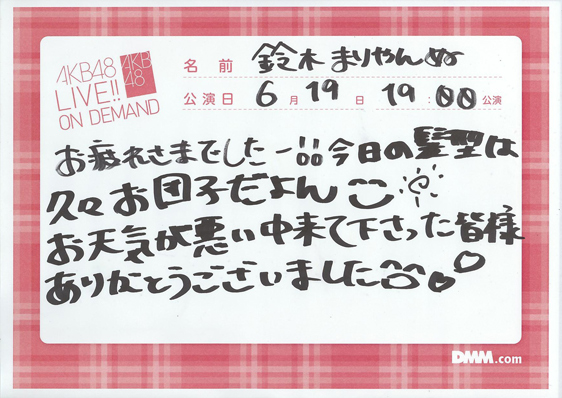 AKB48
LIVE!!
ON DEMAND
AKB
48
名前 鈴木まりやんぬ
公演日 6月19日 19:00公演
お疲れさまでしたー!!今日の髪型は
久々お団子だよん
お天気が悪い中来て下さった皆様
ありがとうございました
DMM.com